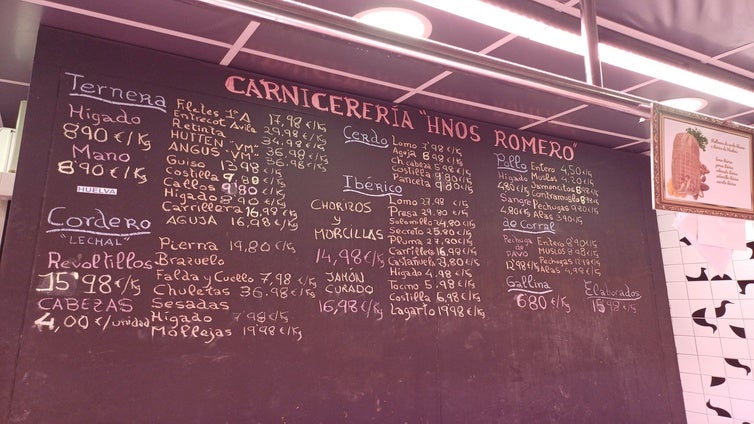 CARNICERERÍA "HNOS ROMERO"
Ternera
Hígado
8'90 €/Kg
Mano
8'90 €/Kg
HUELVA
Filetes 1ª A 17,98 €/Kg
Entrecot Avila 29,98 €/Kg
Retinta 34,98 €/Kg
HUTTEN "VM" 36,98 €/Kg
ANGUS "VM" 36,98 €/Kg
Guiso 13'98
Costilla 9,80
Callos 9'80
Hígado 8'90 €/Kg
Carrillera 16,98 €/Kg
AGUJA 16,98 €/Kg
Cordero
"LECHAL"
Revoltillos
15'98 €/Kg
CABEZAS
4,00 €/unidad
Pierna 19,80 €/Kg
Brazuelo
Falda y Cuello 7,98 €/Kg
Chuletas 36,98 €/Kg
Sesadas
Hígado 7'98 €/Kg
Mollejas 19'98 €/Kg
Cerdo
Lomo 7'98 €/Kg
Aguja 8'98 €/Kg
Chuleta
Costilla
Panceta
Ibérico
CHORIZOS
y
MORCILLAS
14,98 €/Kg
JAMÓN
CURADO
16,98 €/Kg
Lomo 27,98 €/Kg
Presa 29,80 €/Kg
Solomillo 24,80 €/Kg
Secreto 25,80 €/Kg
Pluma 27,90 €/Kg
Carrillera 16,98 €/Kg
Castañuela 21,80 €/Kg
Hígado 4,98 €/Kg
Tocino 5,98 €/Kg
Costilla 6,98 €/Kg
Lagarto 19'98 €/Kg
Pollo
Hígado
4'80 €/Kg
Sangre
4,80 €/Kg
Entero 4,50 €/Kg
Muslos 4,20 €/Kg
Jamoncitos
Contramuslos
Pechugas 9,80 €/Kg
Alas 3'90 €/Kg
de Corral
Pechuga
de
PAVO
12'98 €/Kg
Entero 8'90 €/Kg
MUSLOS 8,98 €/Kg
Pechugas
Alas 4,98 €/Kg
Gallina
6'80 €/Kg
Elaborados
15'98 €/Kg